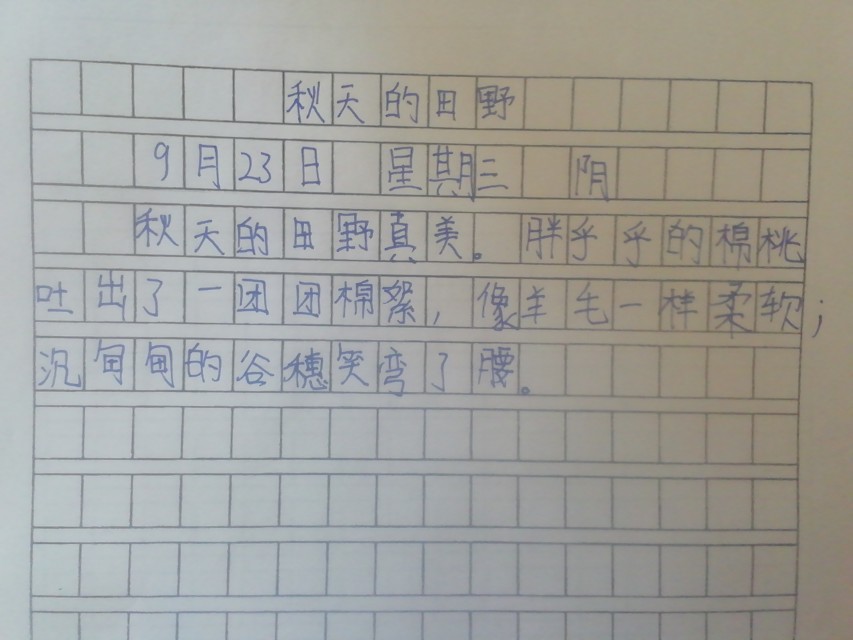 秋天的田野
9月23日 星期三 阴
秋天的田野真美。胖乎乎的棉桃
吐出了一团团棉絮,像羊毛一样柔软;
沉甸甸的谷穗笑弯了腰。